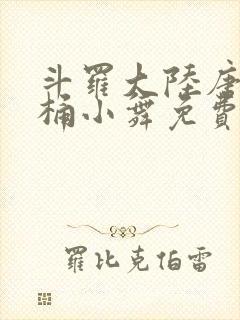 斗羅大陸唐
桶小舞免費
羅比克伯雷